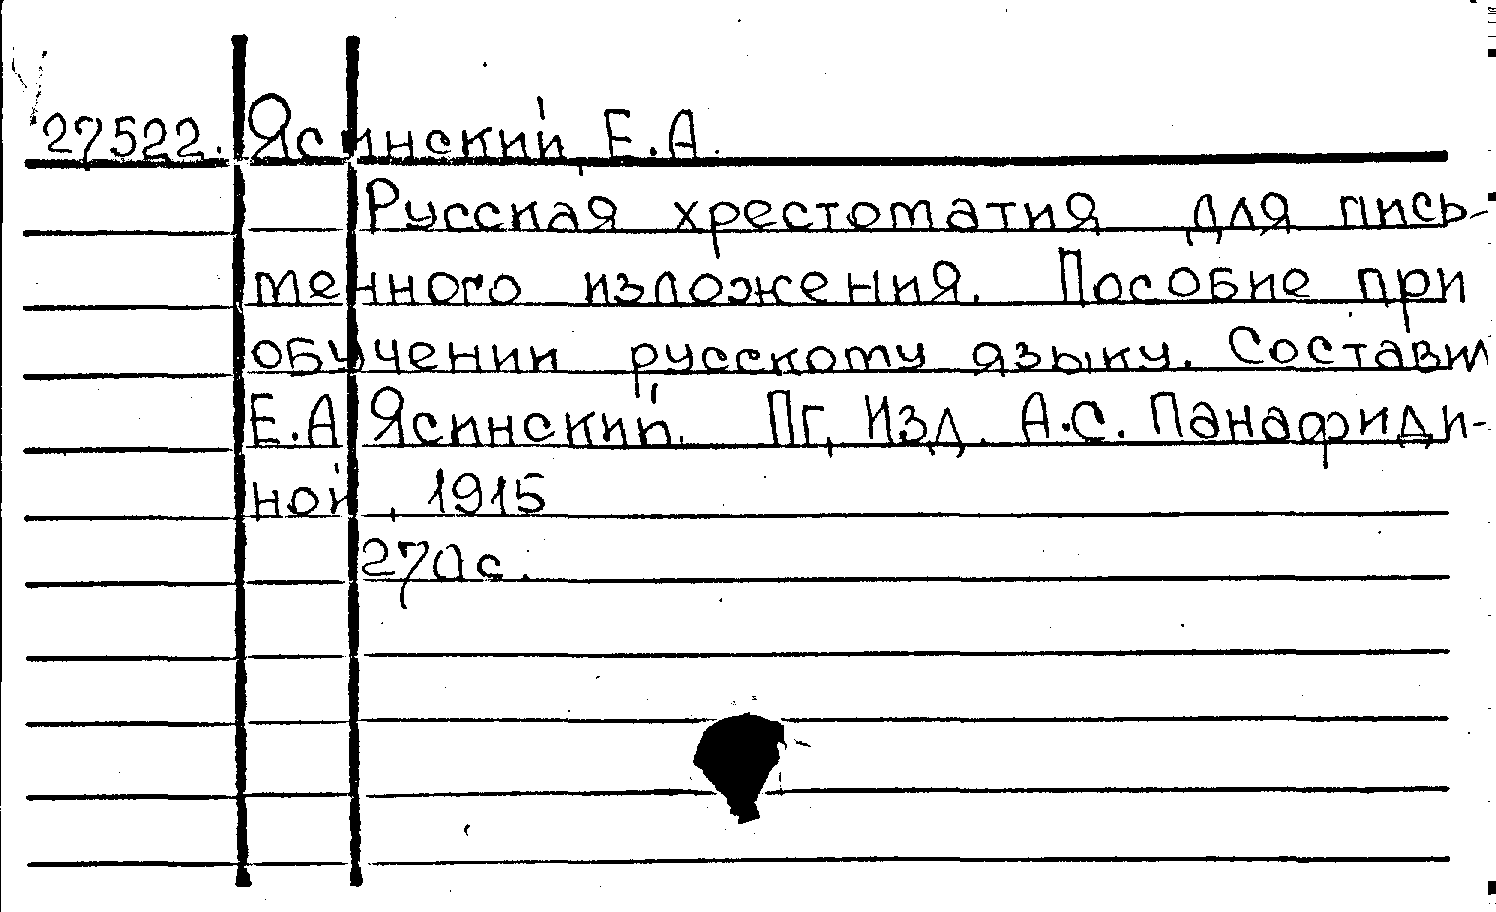 27522. Ясинский, Е.А.
Русская хрестоматия для пись-
менного изложения. Пособие при
обучении русскому языку. Составил
Е.А Ясинский. Пг, Изд. А.С. Панафиди-
ной, 1915
270с.